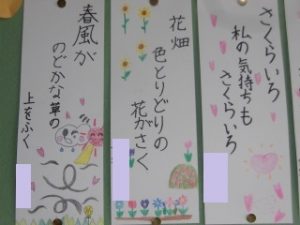 さくらいろ
私の気持ちも
さくらいろ
花畑
色とりどりの
花がさく
春風が
のどかな草の
上をふく